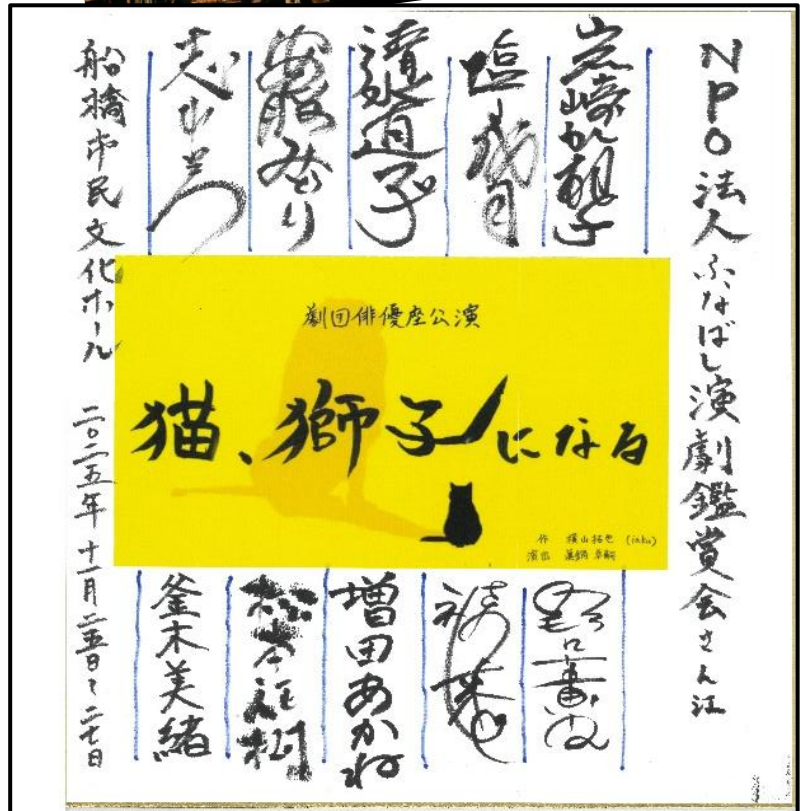 NPO法人ふなばし演劇鑑賞会さん江
岩崎加根子
清水直子
安藤みどり
劇団俳優座公演
猫、獅子になる
作 横山拓也 (iaku)
演出 眞鍋卓嗣
増田あかね
釜木美緒
船橋市民文化ホール 二〇二五年 十一月二五日〜二七日